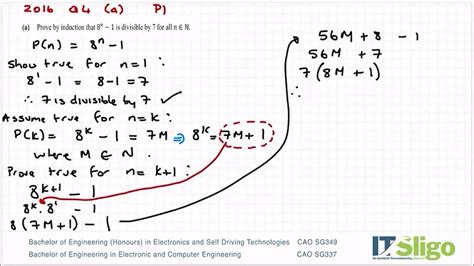 2016 Q4 (a) P1
(a) Prove by induction that 8ⁿ − 1 is divisible by 7 for all n ∈ N.
P(n) = 8ⁿ − 1
Show true for n = 1 :
8¹ − 1 = 8 − 1 = 7
∴ 7 is divisible by 7 ✓
Assume true for n = k :
P(k) = 8ᵏ − 1 = 7M ⇒ 8ᵏ = 7M + 1
where M ∈ N.
Prove true for n = k+1 :
8ᵏ⁺¹ − 1
8ᵏ. 8¹ − 1
8(7M+1) − 1
56M + 8 − 1
56M + 7
7(8M + 1)
∴
Bachelor of Engineering (Honours) in Electronics and Self Driving Technologies CAO SG349
Bachelor of Engineering in Electronic and Computer Engineering CAO SG337
IT Sligo